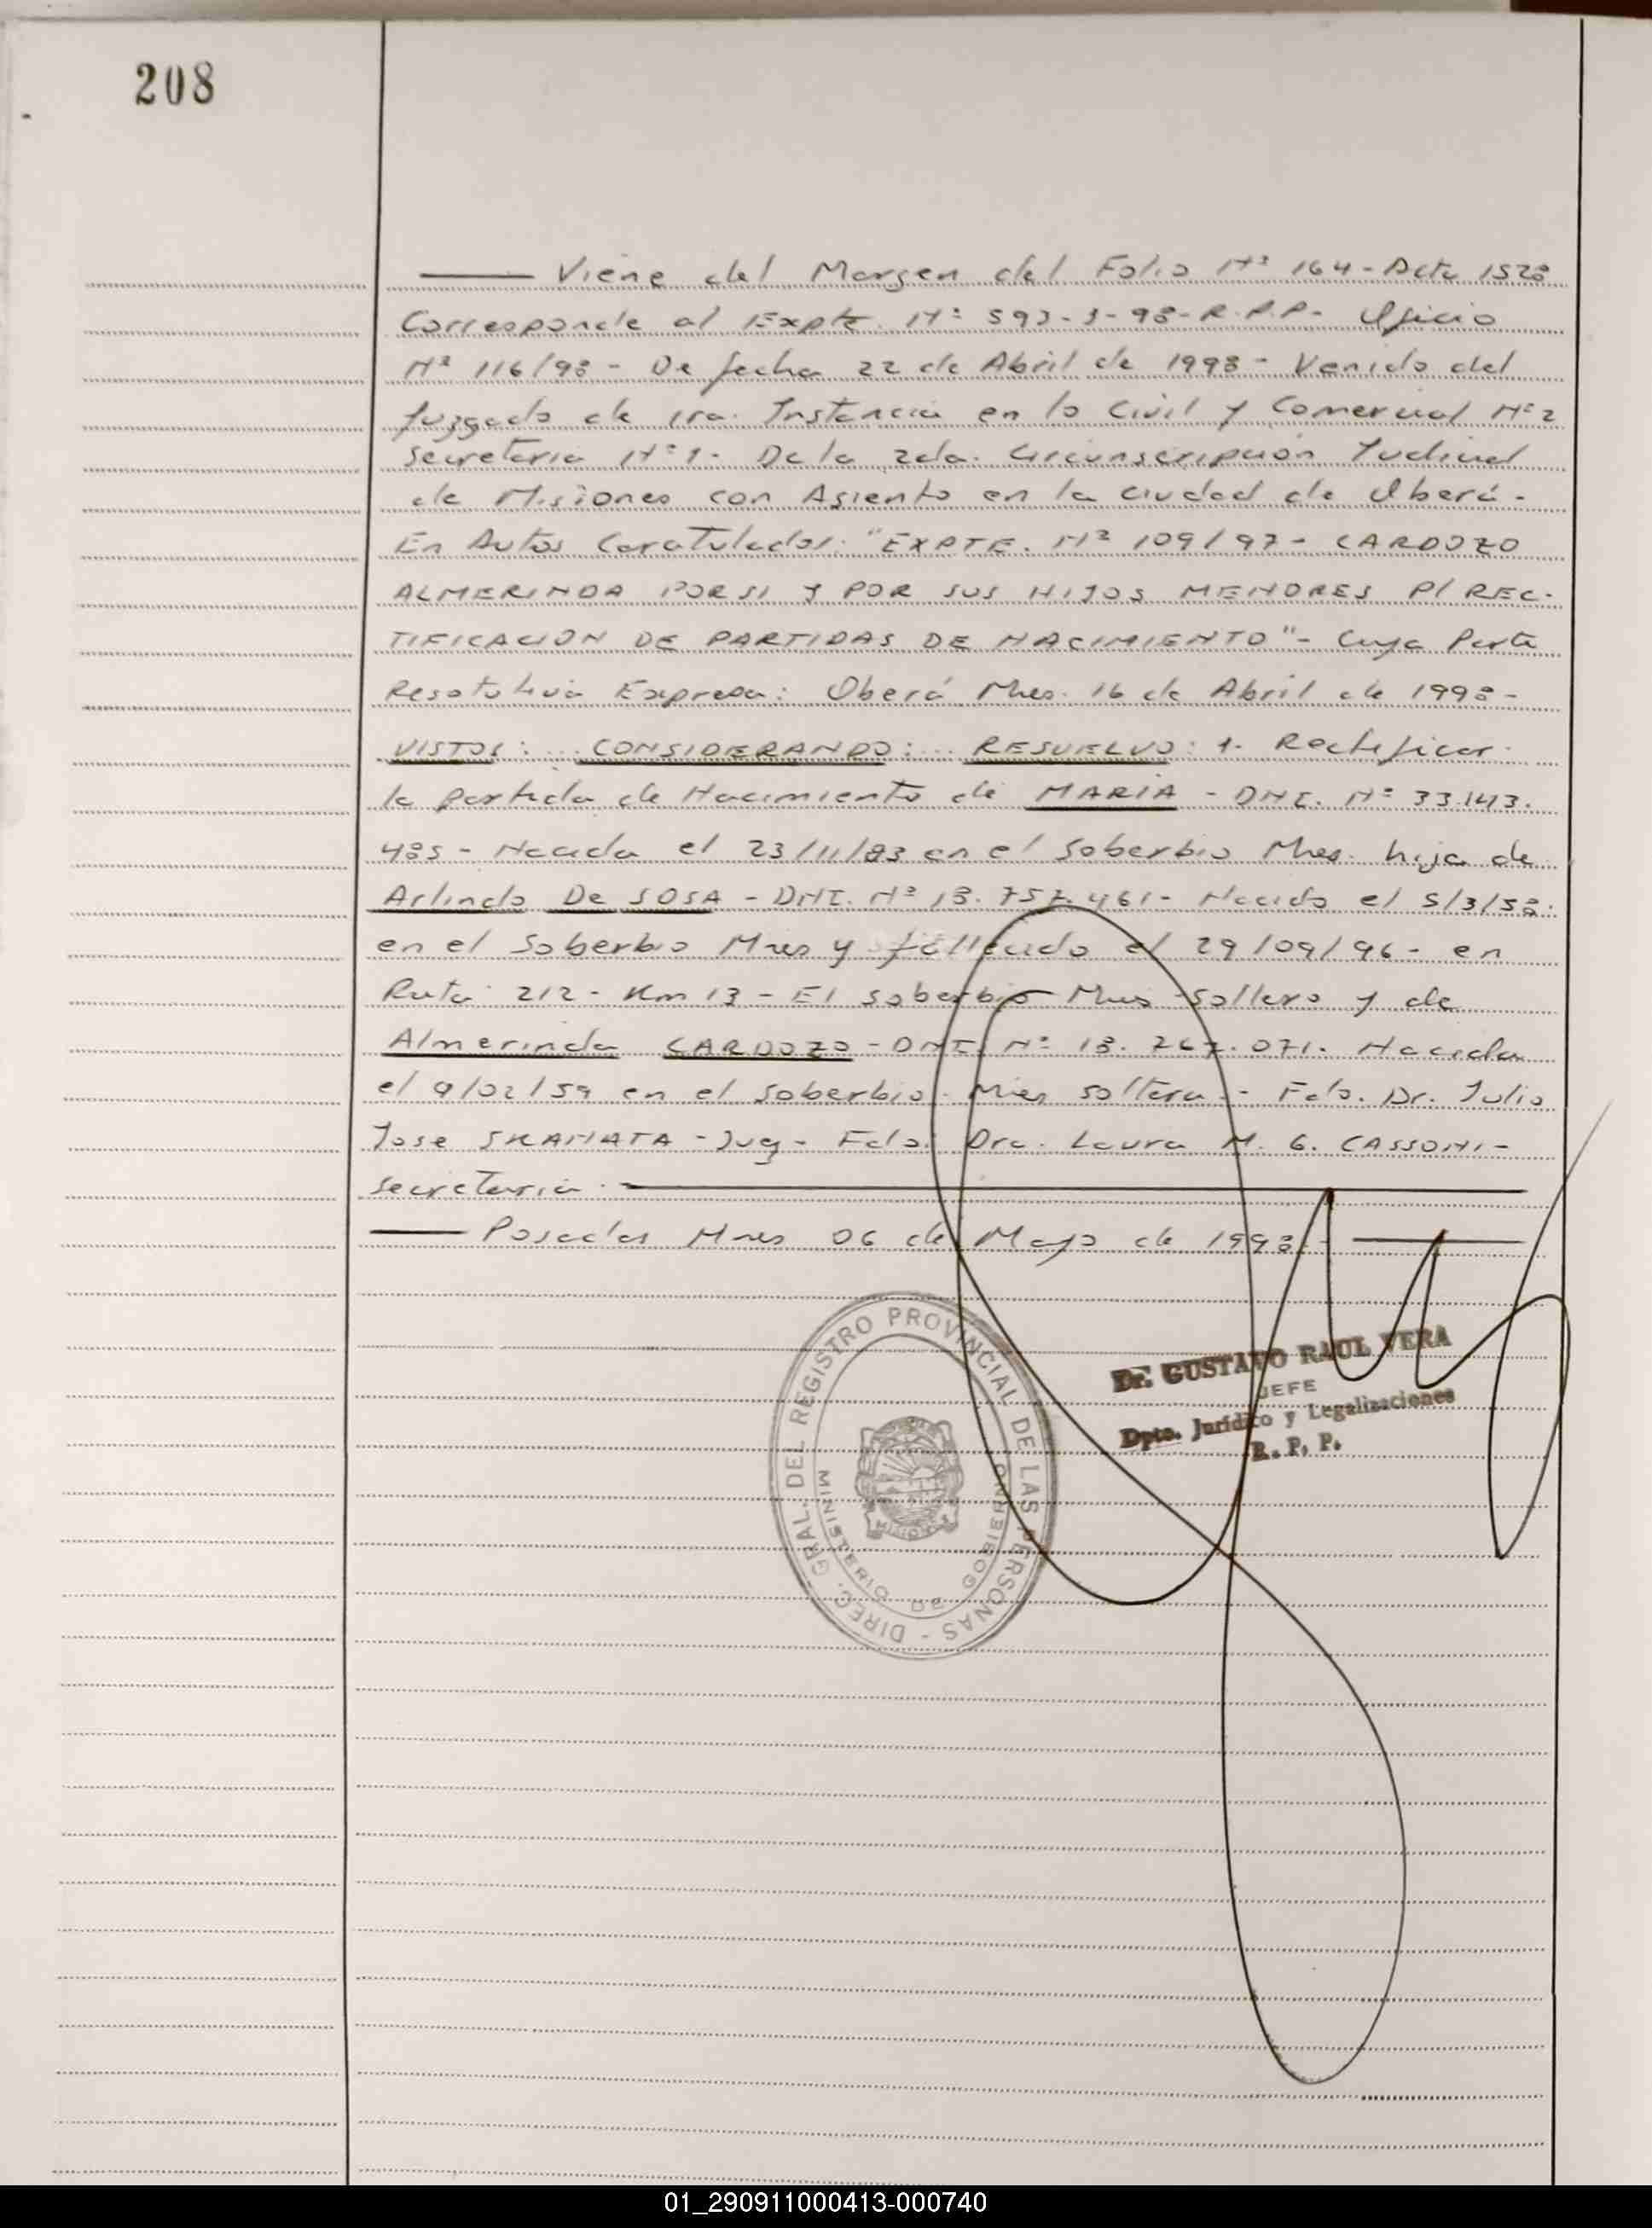 208
Viene del Margen del Folio Nº 164 - Acta 1528
Corresponde al Expte. Nº 593-J-98-R.P.P. - Oficio
Nº 116/98 - De fecha 22 de Abril de 1998 - Venido del
Juzgado de 1ra. Instancia en lo Civil y Comercial Nº 2
Secretaria Nº 1. De la 2da. Circunscripción Judicial
de Misiones con Asiento en la Ciudad de Oberá -
En Autos Caratulados: "EXPTE. Nº 109/97 - CARDOZO
ALMERINDA POR SI Y POR SUS HIJOS MENORES P/ REC-
TIFICACION DE PARTIDAS DE NACIMIENTO" - Cuya Parte
Resolutiva Expresa: Oberá Mnes. 16 de Abril de 1998 -
VISTOS: ... CONSIDERANDO: ... RESUELVO: 1- Rectificar
la partida de Nacimiento de MARIA - DNI. Nº 33.143.
485 - Nacida el 23/11/83 en el Soberbio Mnes. hija de
Arlindo De SOSA - DNI. Nº 18.757.461 - Nacido el 5/3/58
en el Soberbio Mnes y fallecido el 29/09/96 - en
Ruta 212 - Km 13 - El Soberbio Mnes - soltero y de
Almerinda CARDOZO - DNI. Nº 18.767.071. Nacida
el 9/02/59 en el Soberbio - Mnes soltera. - Fdo. Dr. Julio
Jose SKANATA - Juez - Fdo. Dra. Laura M. G. CASSONI -
Secretaria.
Posadas Mnes 06 de Mayo de 1998 -
DIREC. GRAL. DEL REGISTRO PROVINCIAL DE LAS PERSONAS -
MINISTERIO DE GOBIERNO
MISIONES
Dr. GUSTAVO RAUL VERA
JEFE
Dpto. Jurídico y Legalizaciones
R. P. P.
01_290911000413-000740